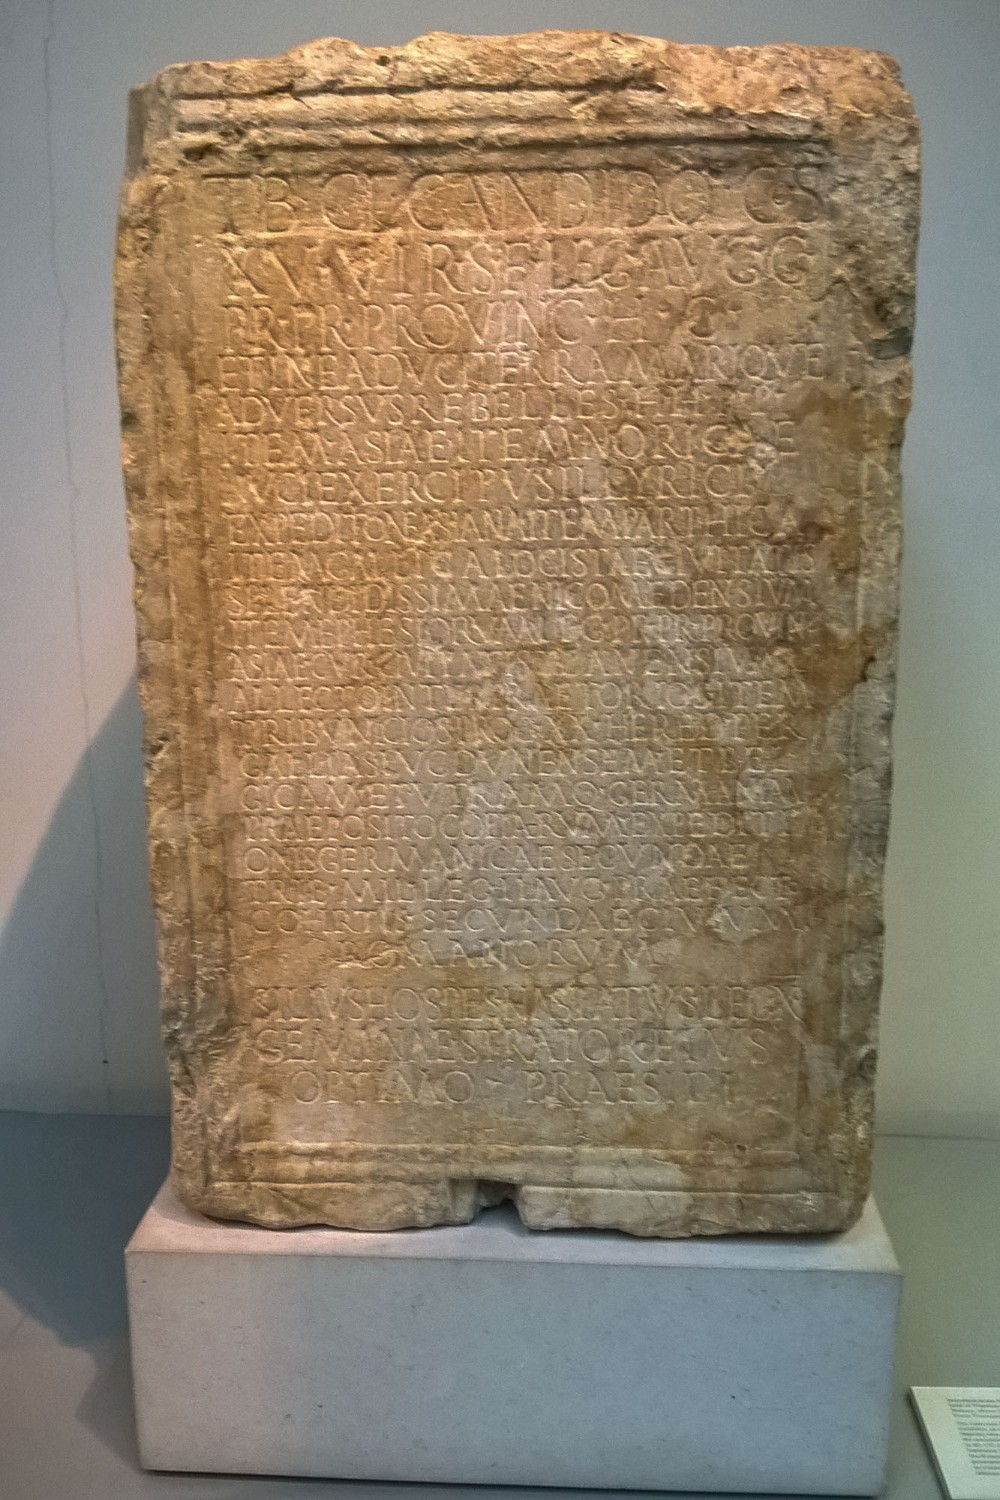 TIB·CL·CANDIDO·COS
XV·VIR·S·F·LEG·AVGG
PR·PR·PROVINC·H·C
ET IN EA DVCI TERRA MARIQVE
ADVERSVS REBELLES HH PP
ITEM ASIAE ITEM NORICAE
DVCI EXERCITVS ILLYRICI
EXPEDITIONE ASIANA ITEM PARTHICA
ITEM GALLICA LOGISTAE CIVITATIS
SPLENDIDISSIMAE NICOMEDENSIVM
ITEM EPHESIORVM LEG·PR·PR·PROVIN
ASIAE CVR CIVITATIS TEANENSIVM
ALLECTO INTER PRAETORIOS ITEM
TRIBVNICIOS PROC XX HERED PER
GALLIAS LVGDVNENSEM ET BEL
GICAM ET VTRAMQ·GERMANIAM
PRAEPOSITO COPIARVM EXPEDITI
ONIS GERMANICAE SECVNDAE
TRIB·MIL·LEG·II AVG PRAEFECTO
COHORTIS SECVNDAE CIVIVM
ROMANORVM
SILIVS HOSPES HASTATVS LEG X
GEMINAE STRATOR EIVS
OPTIMO PRAESIDI